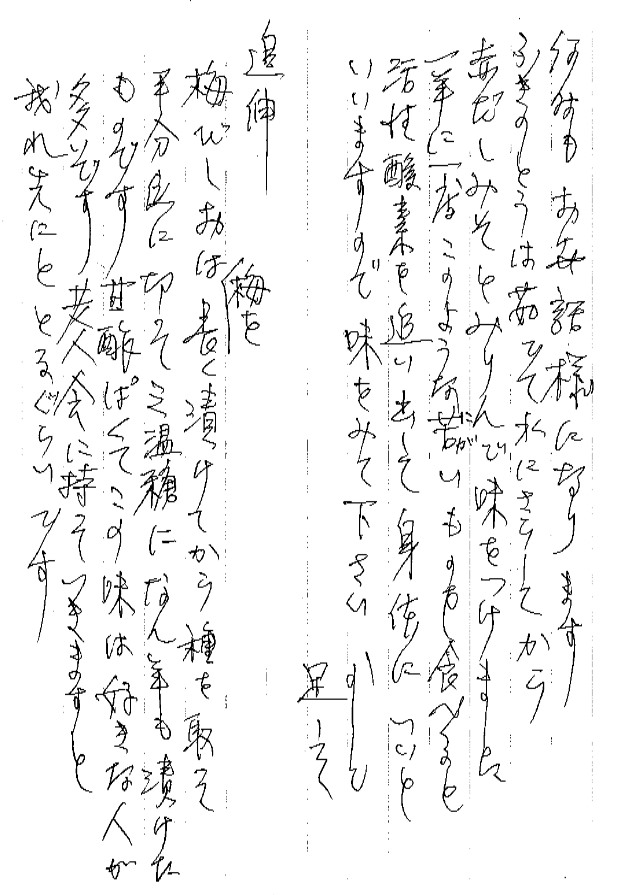 何時もお世話様になります
ふきのとうは茹でて水にさらしてから
赤だしみそとみりんで味をつけました
一年に一度このような苦いものも食べると
にが
活性酸素を追い出して身体にいいと
いいますので味をみて下さい
少し
足して
追伸
梅を
梅びしおは長く漬けてから種を取って
半分位に切って三温糖になん年も漬けた
ものです 甘酸ぱくてこの味は好きな人が
多いです 老人会に持っていきますと
我れ先にととるぐらいです